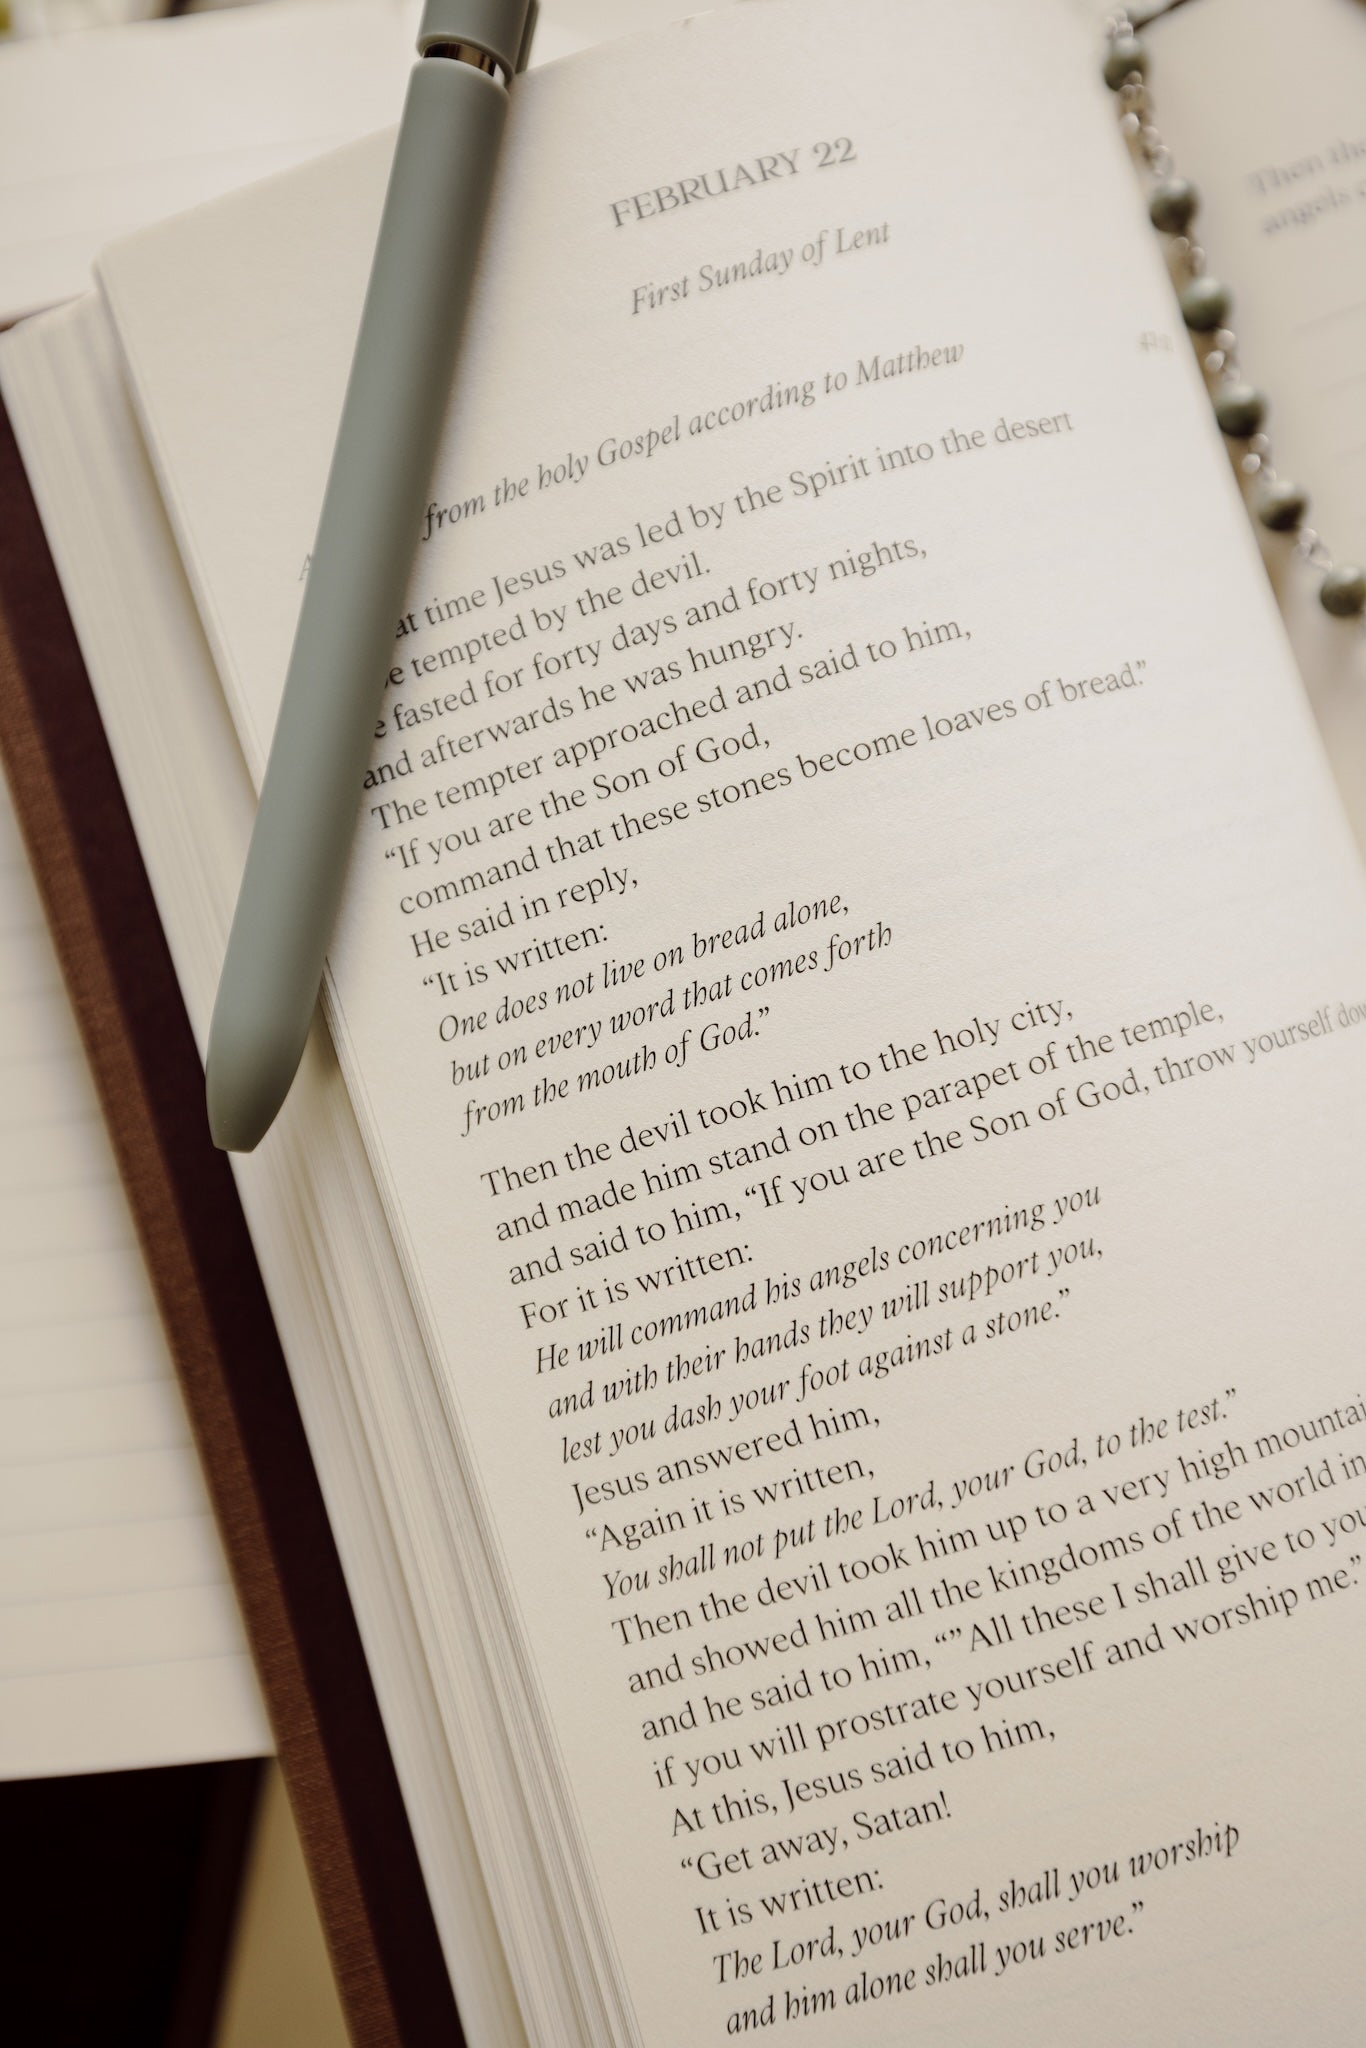 FEBRUARY 22
First Sunday of Lent
from the holy Gospel according to Matthew
at time Jesus was led by the Spirit into the desert
e tempted by the devil.
e fasted for forty days and forty nights,
and afterwards he was hungry.
The tempter approached and said to him,
“If you are the Son of God,
command that these stones become loaves of bread.”
He said in reply,
“It is written:
One does not live on bread alone,
but on every word that comes forth
from the mouth of God.”
Then the devil took him to the holy city,
and made him stand on the parapet of the temple,
and said to him, “If you are the Son of God, throw yourself dow
For it is written:
He will command his angels concerning you
and with their hands they will support you,
lest you dash your foot against a stone.”
Jesus answered him,
“Again it is written,
You shall not put the Lord, your God, to the test.”
Then the devil took him up to a very high mountai
and showed him all the kingdoms of the world in
and he said to him, “” All these I shall give to you
if you will prostrate yourself and worship me.”
At this, Jesus said to him,
“Get away, Satan!
It is written:
The Lord, your God, shall you worship
and him alone shall you serve.”
Then the
angels